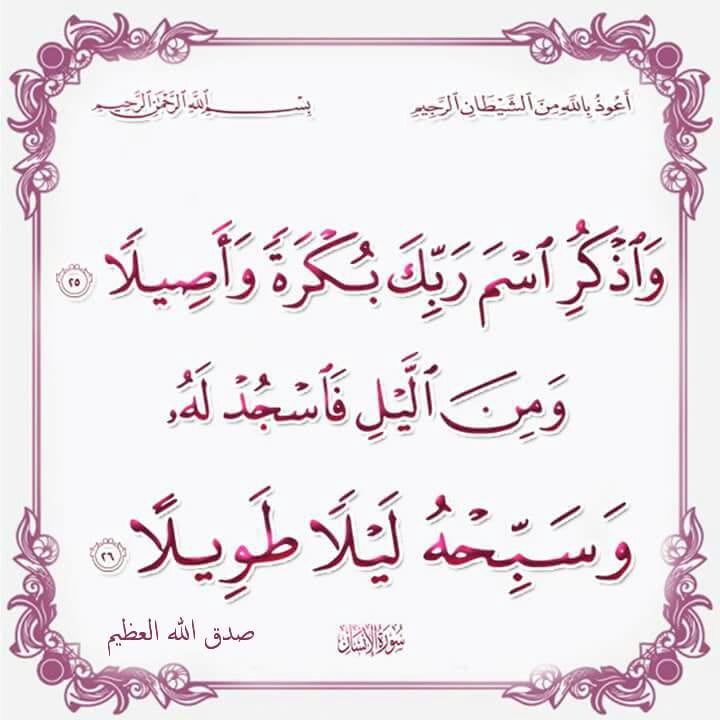 أَعُوذُ بِاللَّهِ مِنَ الشَّيْطَانِ الرَّجِيمِ
بِسْمِ اللَّهِ الرَّحْمَنِ الرَّحِيمِ
وَٱذْكُرِ ٱسْمَ رَبِّكَ بُكْرَةً وَأَصِيلًا ٢٥
وَمِنَ ٱلَّيْلِ فَٱسْجُدْ لَهُۥ
وَسَبِّحْهُ لَيْلًا طَوِيلًا ٢٦
صدق الله العظيم
سُورَةُ الإِنْسَانِ